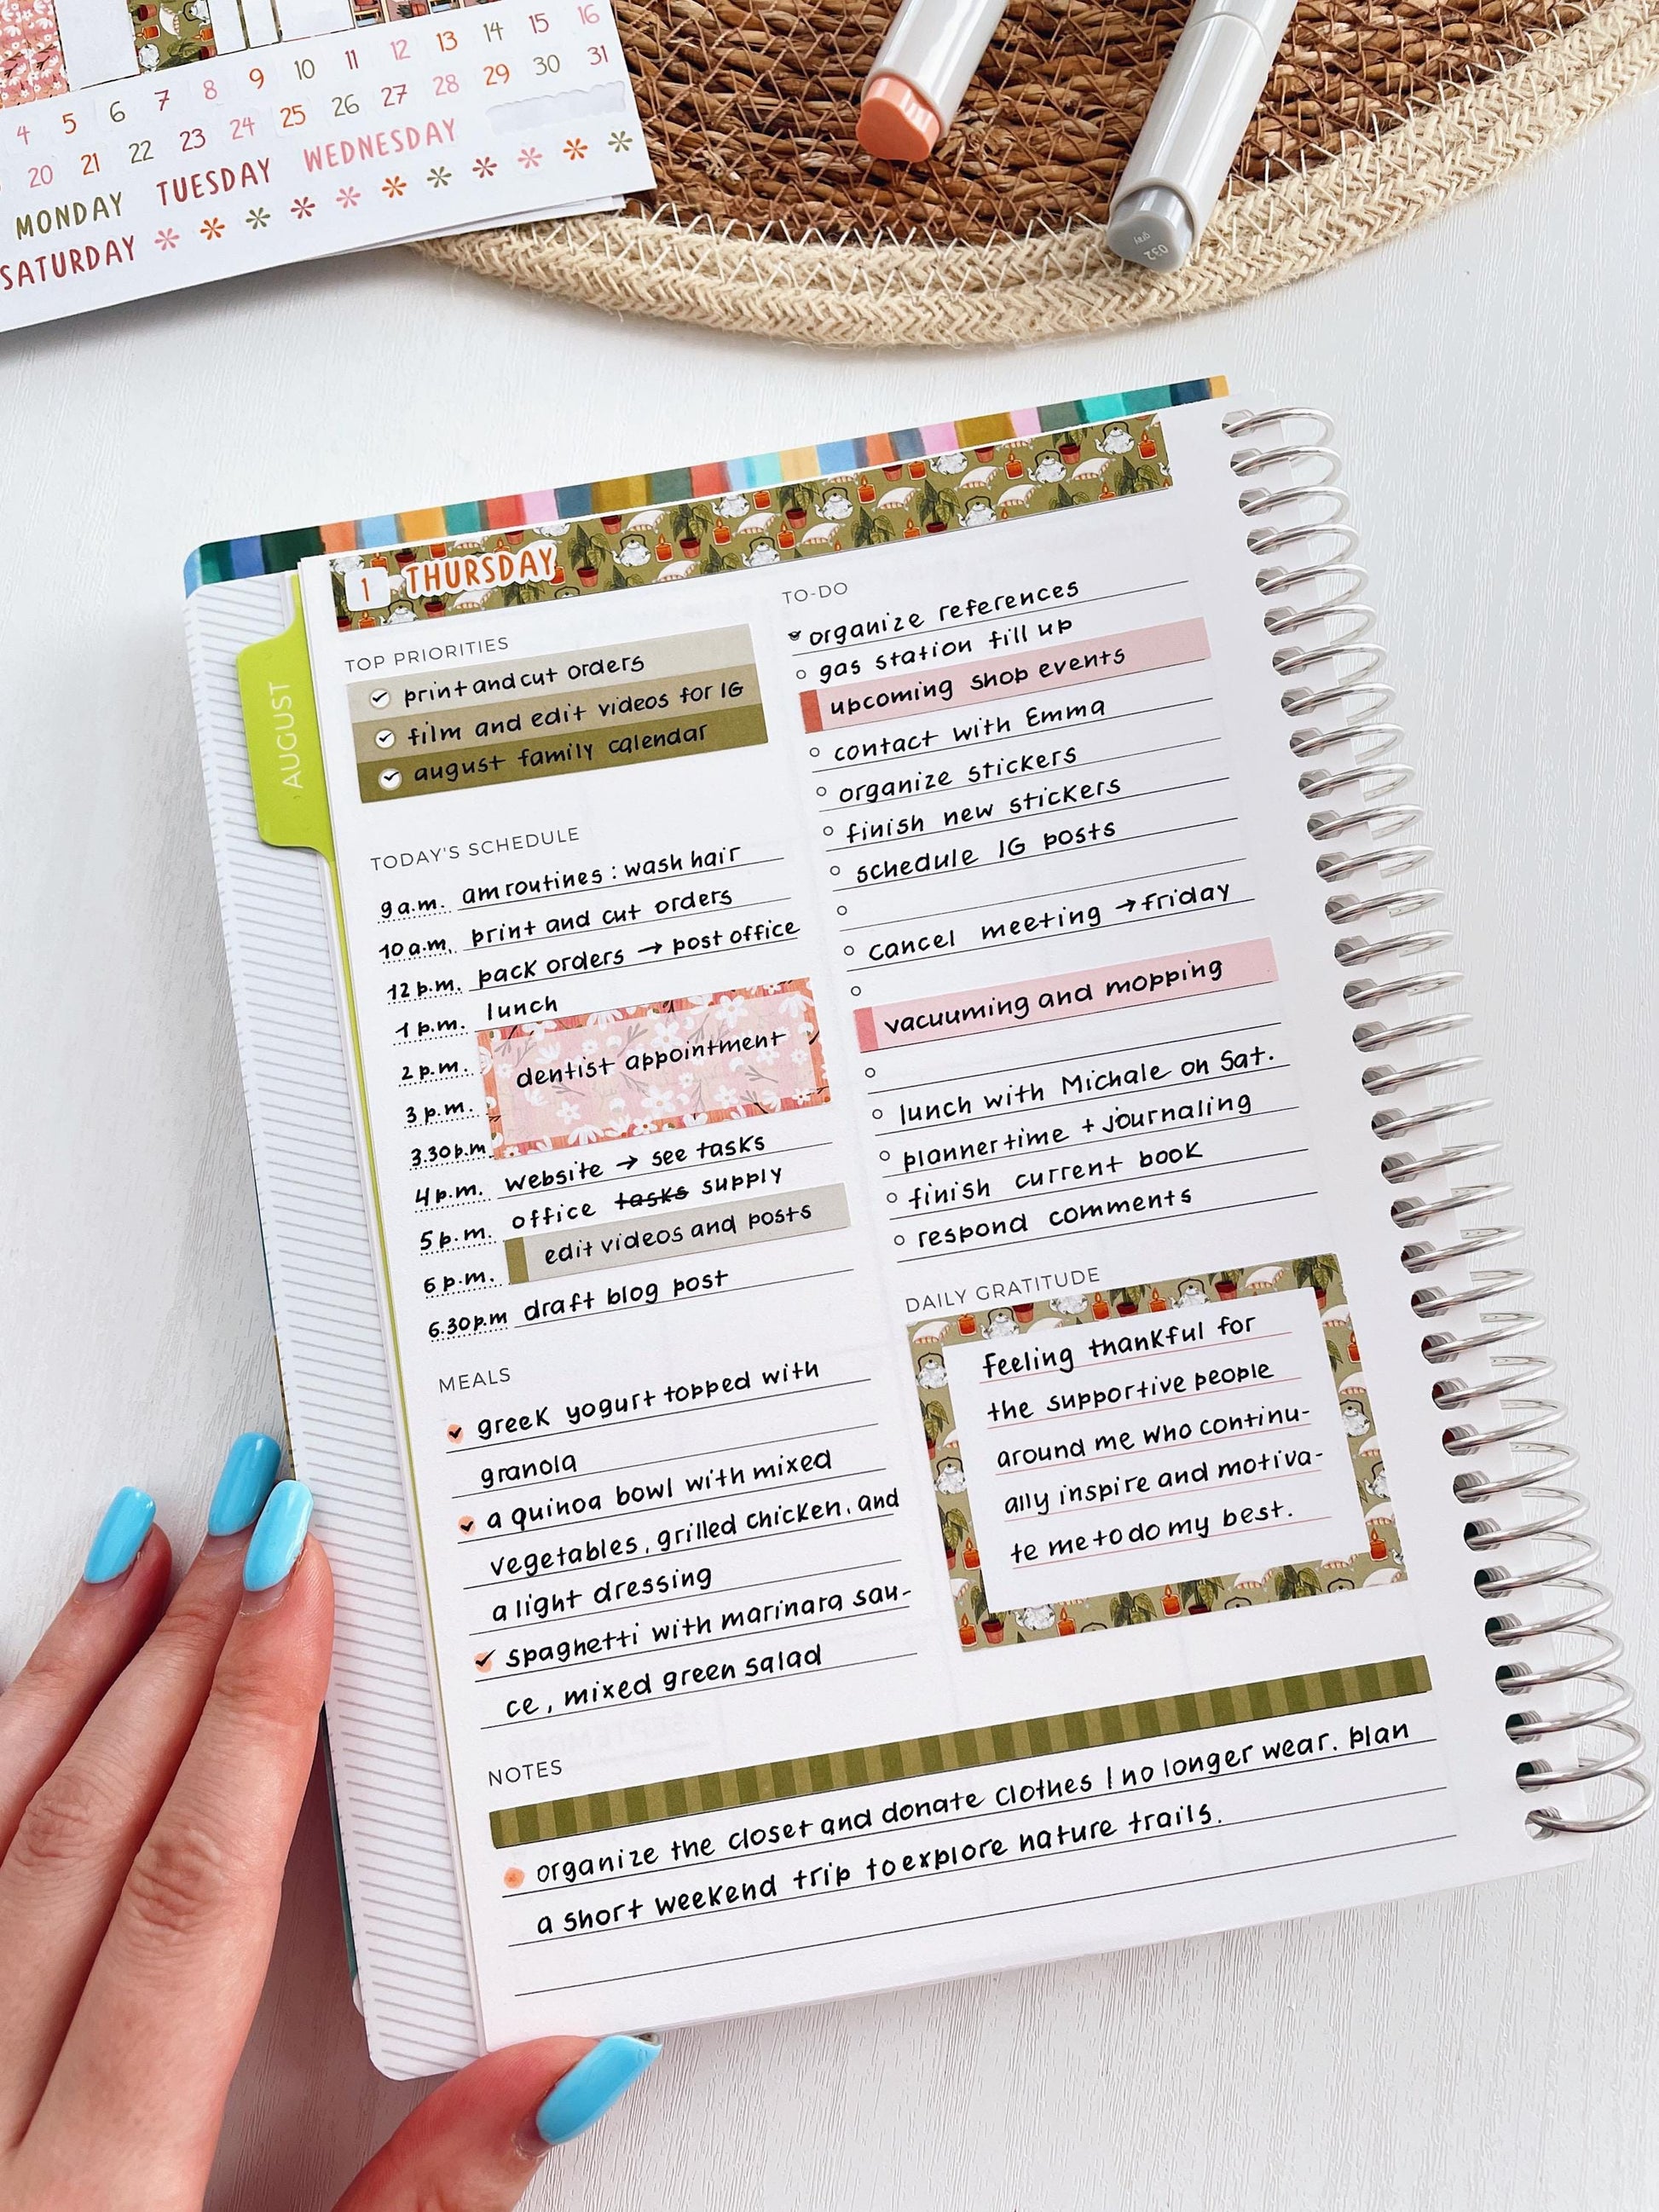 4 5 6 7 8 9 10 11 12 13 14 15 16
20 21 22 23 24 25 26 27 28 29 30 31
MONDAY TUESDAY WEDNESDAY
SATURDAY
032
AUGUST
1 THURSDAY
TOP PRIORITIES
print and cut orders
film and edit videos for IG
august family calendar
TODAY'S SCHEDULE
9 a.m. am routines : wash hair
10 a.m. print and cut orders
12 p.m. pack orders → post office
1 p.m. lunch
2 p.m. dentist appointment
3 p.m.
3.30 p.m.
4 p.m. website → see tasks
5 p.m. office tasks supply
6 p.m. edit videos and posts
6.30 p.m draft blog post
MEALS
greek yogurt topped with
granola
a quinoa bowl with mixed
vegetables, grilled chicken, and
a light dressing
spaghetti with marinara sau-
ce, mixed green salad
TO-DO
organize references
gas station fill up
upcoming shop events
contact with Emma
organize stickers
finish new stickers
schedule IG posts
cancel meeting → friday
vacuuming and mopping
lunch with Michale on Sat.
planner time + journaling
finish current book
respond comments
DAILY GRATITUDE
feeling thankful for
the supportive people
around me who continu-
ally inspire and motiva-
te me to do my best.
NOTES
organize the closet and donate clothes I no longer wear. plan
a short weekend trip to explore nature trails.